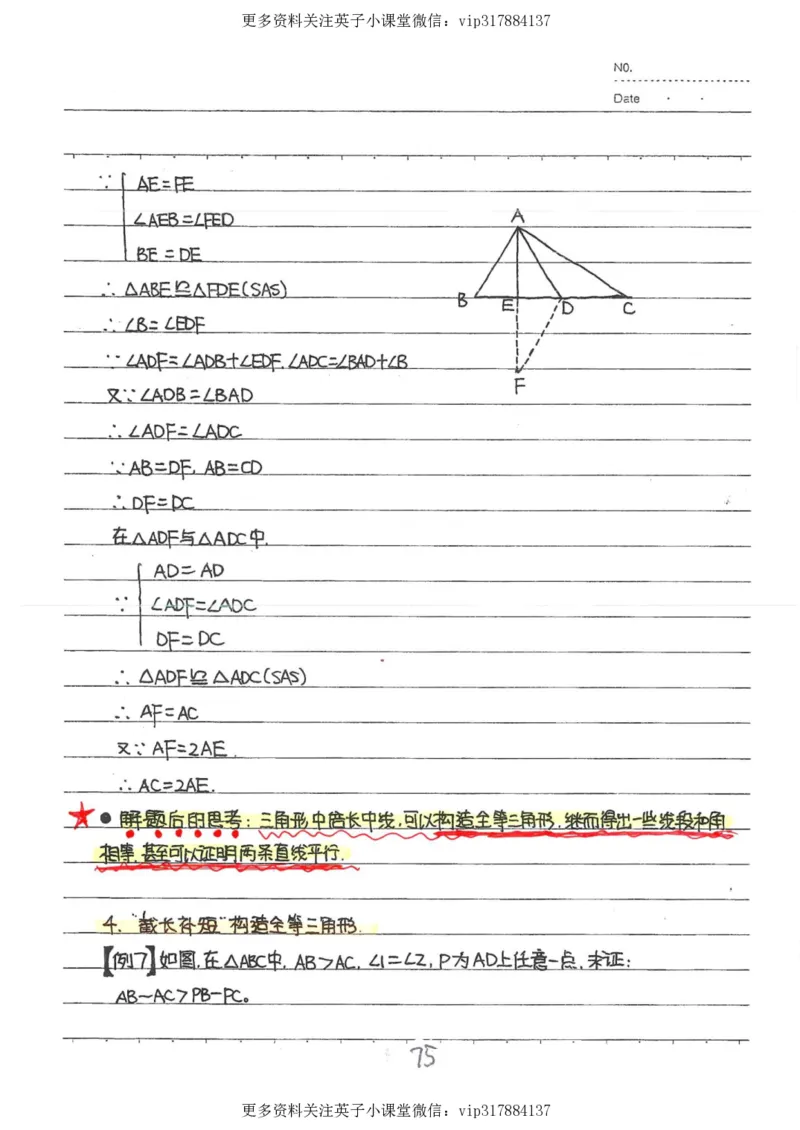 更多资料关注英子小课堂微信：vip317884137
NO.
Date
∵ AE=FE
∠AEB=∠FED
BE=DE
∴ △ABE≌△FDE(SAS)
∴ ∠B=∠EDF
∵ ∠ADF=∠ADB+∠EDF,∠ADC=∠BAD+∠B
又∵∠ADB=∠BAD
∴∠ADF=∠ADC
∵AB=DF, AB=CD
∴DF=DC
在△ADF与△ADC中,
AD=AD
∵ ∠ADF=∠ADC
DF=DC
∴ △ADF≌△ADC(SAS)
∴ AF=AC
又∵ AF=2AE.
∴ AC=2AE.
A
B
E
D
C
F
★●解题后的思考:三角形中倍长中线,可以构造全等三角形,继而得出一些线段和角
相等,甚至可以证明两条直线平行.
4. "截长补短"构造全等三角形.
【例7】如图,在△ABC中, AB>AC, ∠1=∠2, P为AD上任意一点, 求证:
AB-AC>PB-PC。
75
更多资料关注英子小课堂微信：vip317884137